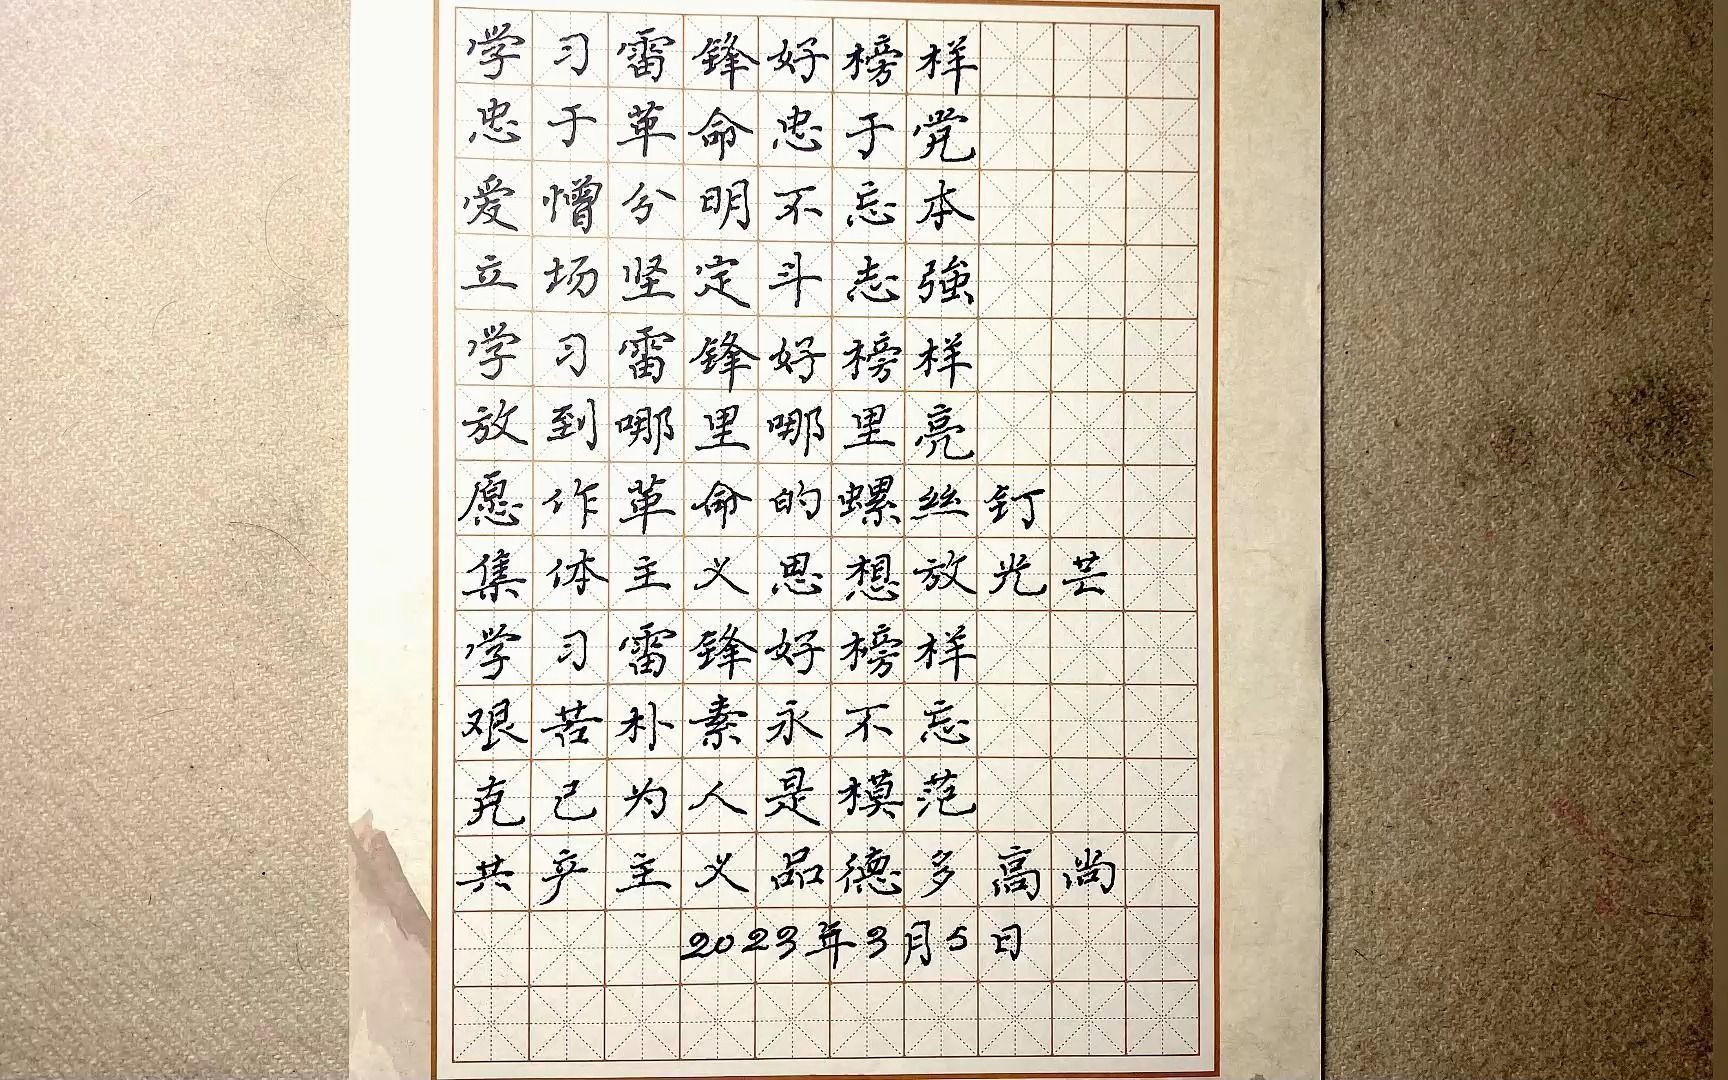 学习雷锋好榜样
忠于革命忠于党
爱憎分明不忘本
立场坚定斗志強
学习雷锋好榜样
放到哪里哪里亮
愿作革命的螺丝钉
集体主义思想放光芒
学习雷锋好榜样
艰苦朴素永不忘
克己为人是模范
共产主义品德多高尚
2023年3月5日